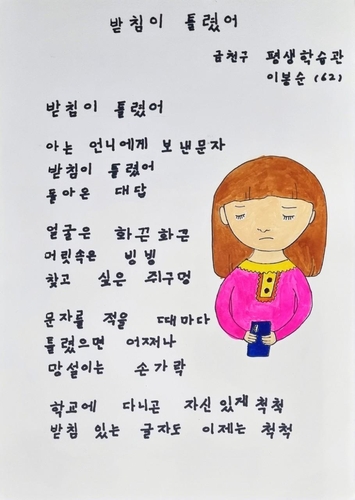 받침이 틀렸어
금천구 평생학습관
이봉순 (62)
받침이 틀렸어
아는 언니에게 보낸문자
받침이 틀렸어
돌아온 대답
얼굴은 화끈화끈
머릿속은 빙빙
찾고 싶은 쥐구멍
문자를 적을 때마다
틀렸으면 어쩌나
망설이는 손가락
학교에 다니곤 자신있게 척척
받침 있는 글자도 이제는 척척